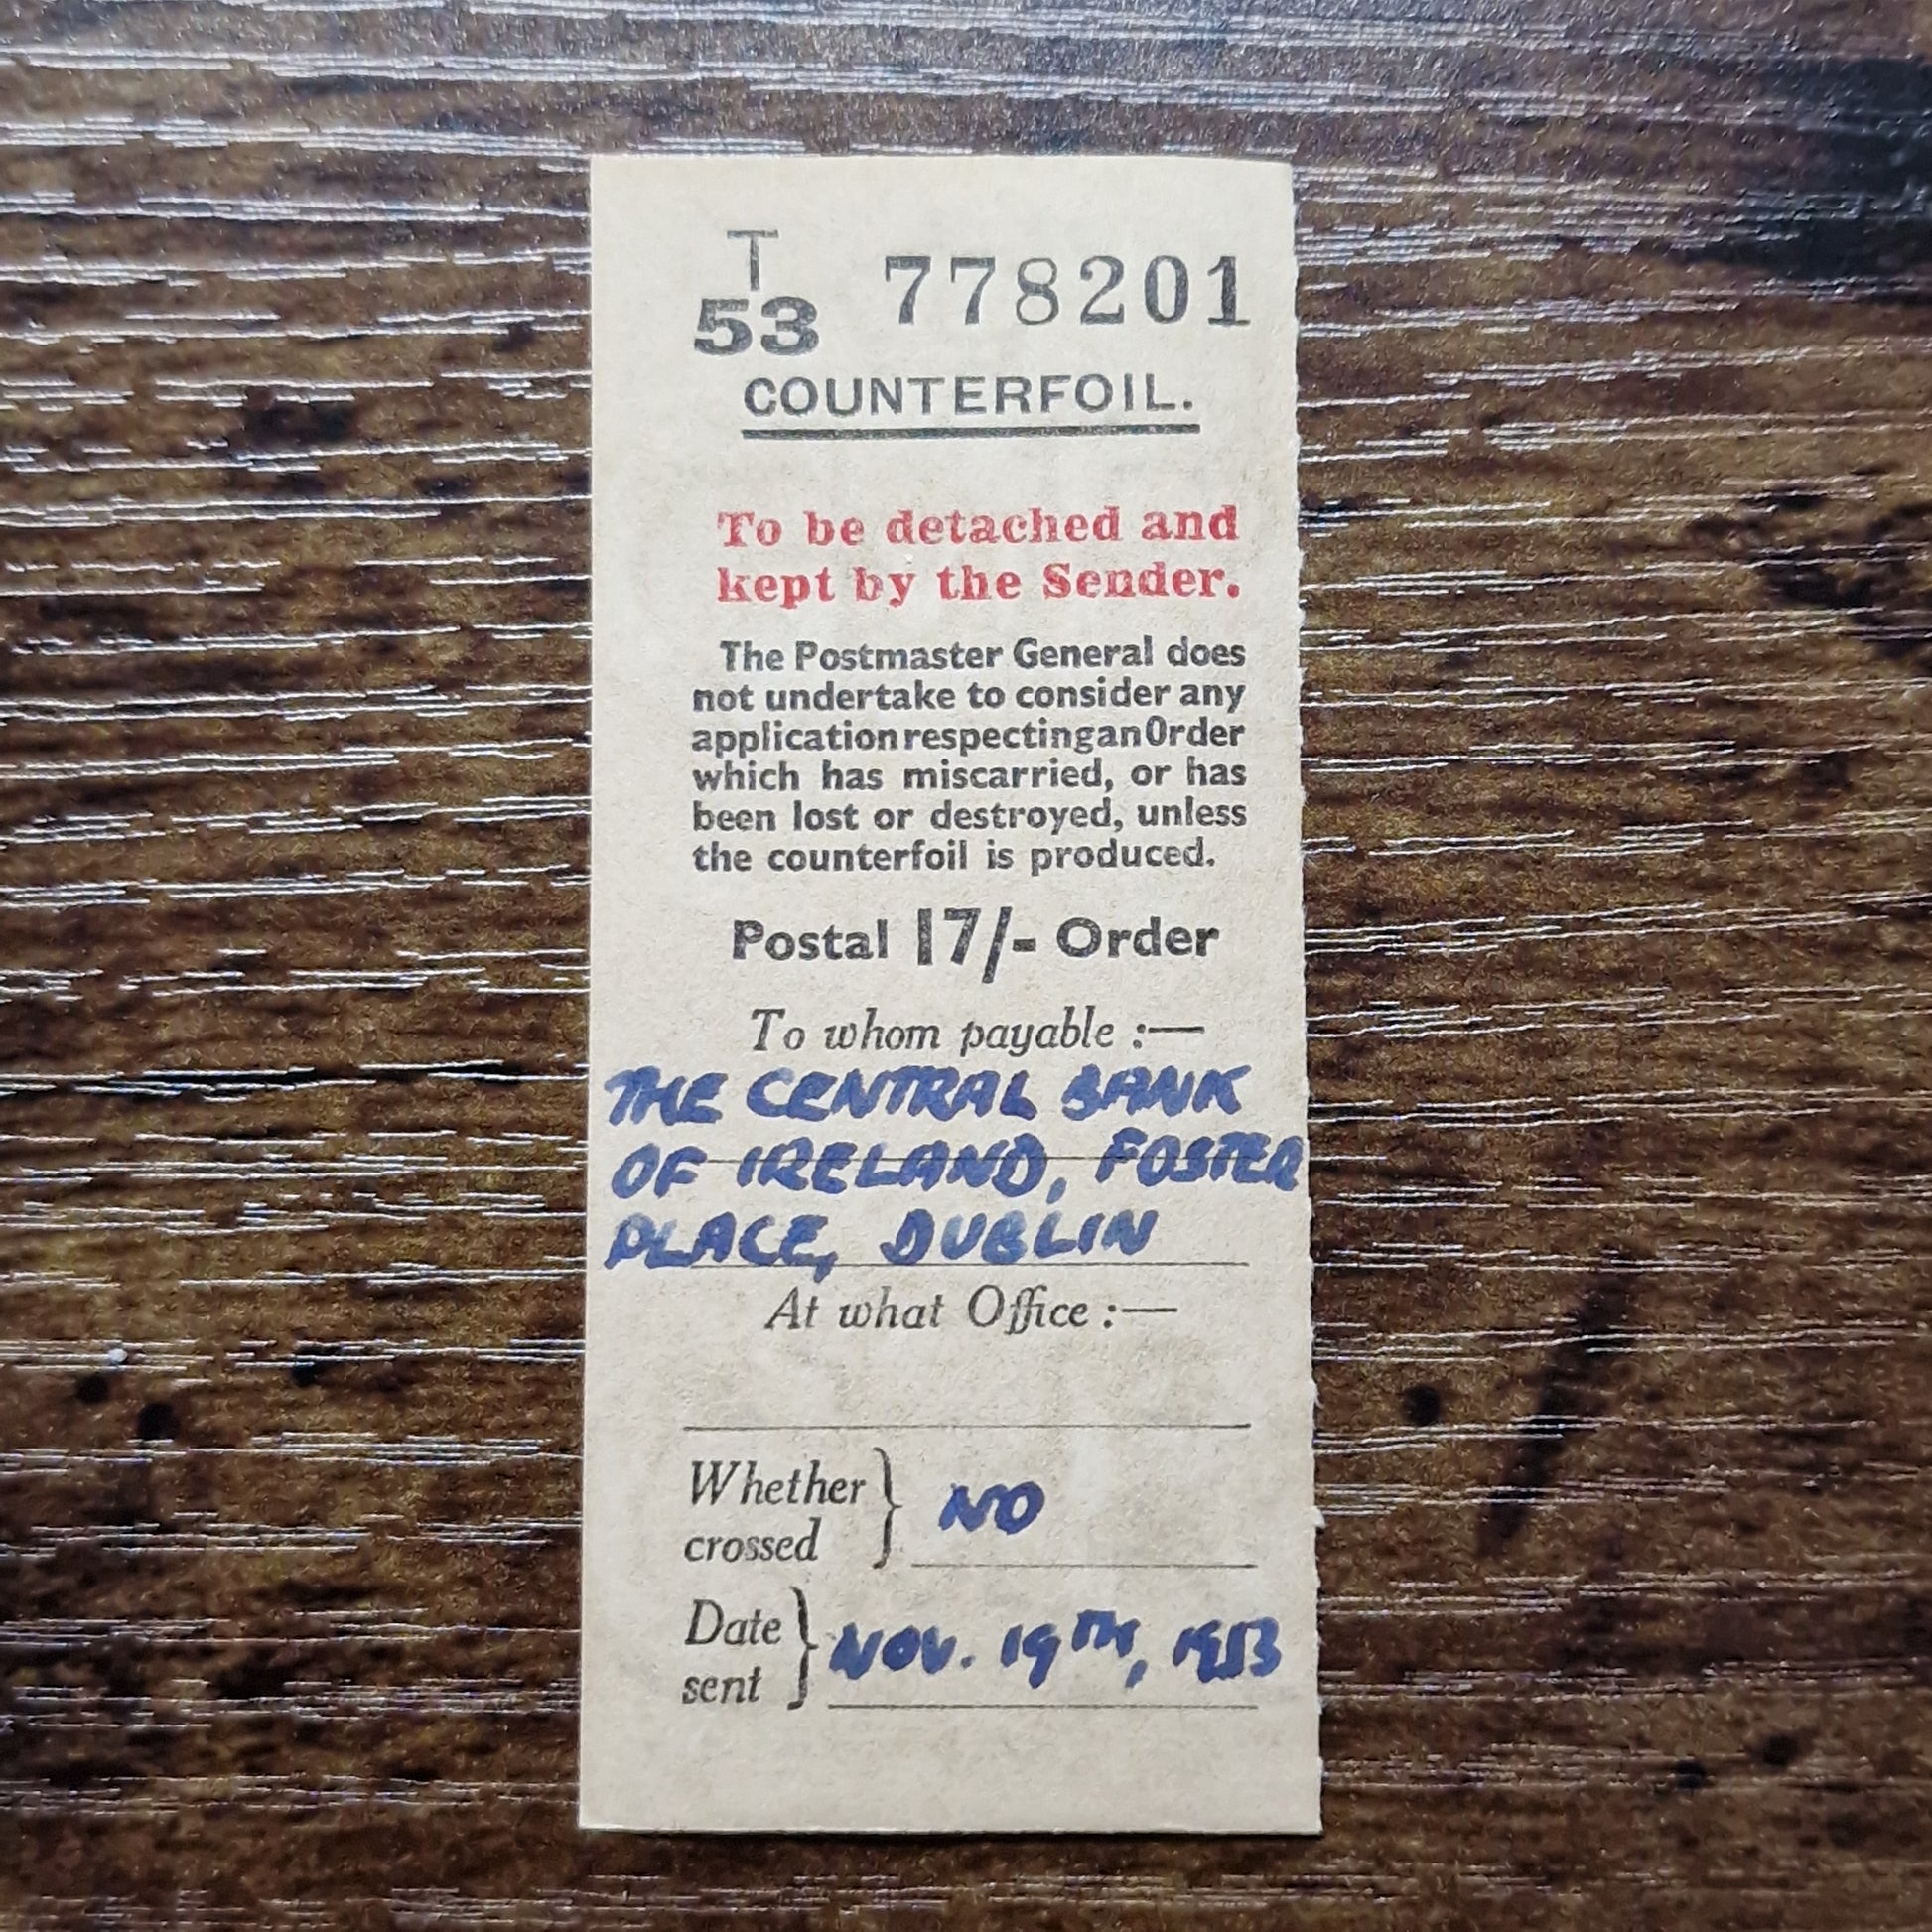 T
53 778201
COUNTERFOIL.
To be detached and
kept by the Sender.
The Postmaster General does
not undertake to consider any
application respecting an Order
which has miscarried, or has
been lost or destroyed, unless
the counterfoil is produced.
Postal 17/- Order
To whom payable :—
THE CENTRAL BANK
OF IRELAND, FOSTER
PLACE, DUBLIN
At what Office :—
Whether } NO
crossed
Date } NOV. 19TH, 1953
sent